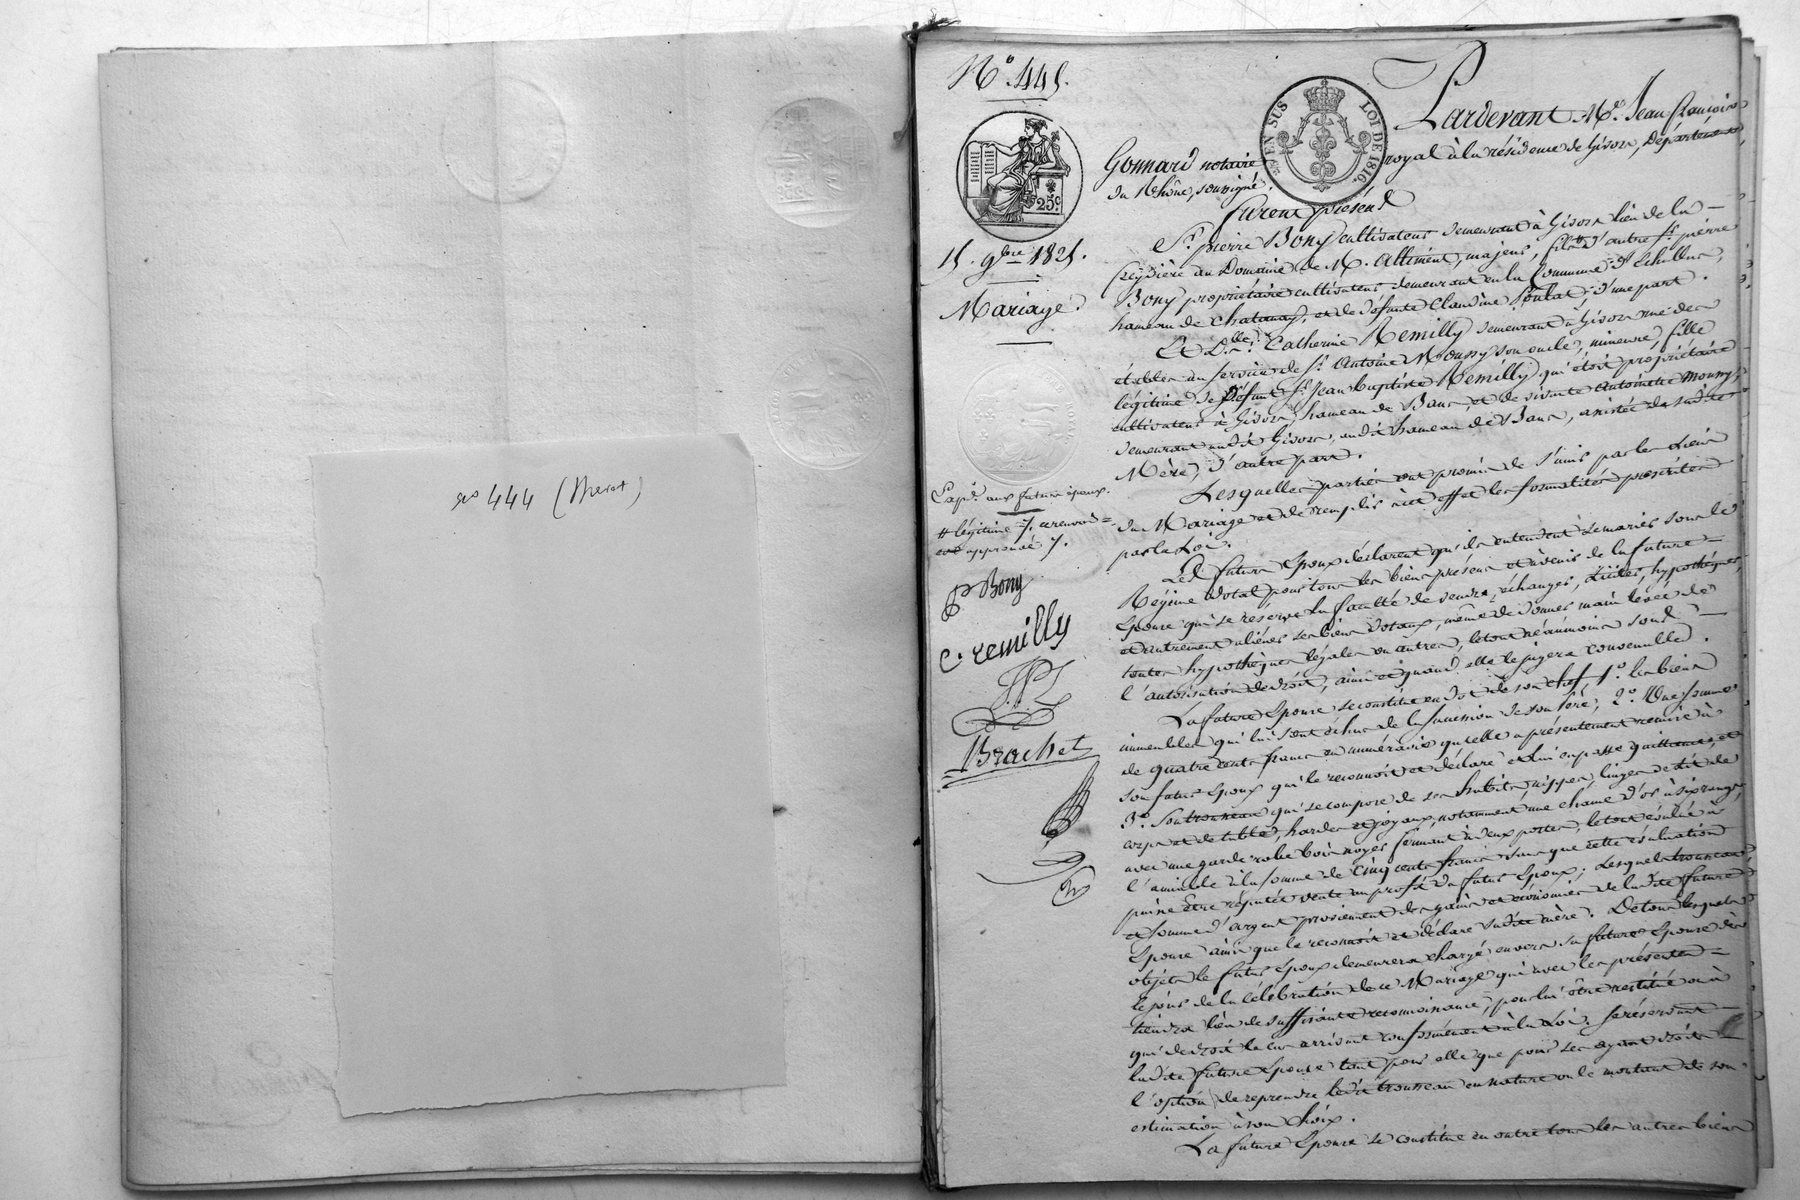 no 444
N° 445.
EN SUS LOI DE 1816.
25c
15. 9bre 1825.
Mariage
Expé. aux futurs époux.
# légitime /. ce renvoi =
approuvé /.
P Bony
C. remilly
Brachet
Pardevant Me. Jean François
Gonnard notaire royal à la résidence de Givors, Département
du Rhône, soussigné.
Furent présens
Sr. pierre Bony cultivateur demeurant à Givors lieu de la
Freydière au Domaine de M. Alliment, majeur, fils d'autre Sr. pierre
Bony propriétaire cultivateur demeurant en la Commune d'Echallas,
hameau de Chatanay, et de défunte Claudine, d'une part.
Et Dlle. Catherine Remilly demeurant à Givors une des
établie au service de Sr. Antoine Moussy son oncle, mineure, fille
légitime de Défunt Sr. Jean Baptiste Remilly qui étoit propriétaire
cultivateur à Givors, hameau de Bans, et de vivante Antoinette Moussy,
demeurant audit Givors, audit hameau de Bans, assistée de sadite
Mère, d'autre part.
Lesquelles parties ont promis de s'unir par les Liens
du Mariage et de remplir à cet effet les formalités prescrites
par la Loi.
Les futurs Epoux déclarent qu'ils entendent se marier sous le
Régime dotal pour tous les biens présens et avenir de la future
Epouse qui se réserve la faculté de vendre, échanger, hypothéquer,
et autrement aliéner ses biens dotaux, même de donner main levée de
toutes hypothèques légales ou autres, le tout néanmoins sous
l'autorisation de droit, ainsi et quand elle le jugera convenable.
La future Epouse se constitue en dot de son chef, 1°. les biens
immeubles qui lui sont échus de la succession de son Père; 2°. Une somme
de quatre cents francs en numéraire qu'elle a présentement remise à
son futur Epoux qui le reconnoit et déclare et lui en passe quittance; et
3°. Son trousseau qui se compose de ses habits, nippes, linges de lit de
corps et de table, hardes et joyaux, notamment une chaine d'or à six rangs,
avec une garde robe bois noyer fermant à deux portes, le tout évalué à
l'amiable à la somme de Cinq cents francs sans que cette évaluation
puisse être réputée vente au profit du futur Epoux; Lesquels trousseau
et somme d'argent proviennent des gains et économies de ladite future
Epouse ainsi que le reconnoit et déclare sadite mère. De tous lesquels
objets le futur Epoux demeurera chargé envers sa future Epouse dès
le jour de la célébration de ce Mariage qui avec les présentes
tiendra lieu de suffisante reconnoissance, pour lui être restitué ou à
qui de droit le cas arrivant conformément à la Loi. Se réservant
ladite future Epouse tant pour elle que pour ses ayant droits
l'option de reprendre ledit trousseau en nature ou le montant de son
estimation à son choix.
La future Epouse se constitue en outre tous les autres biens